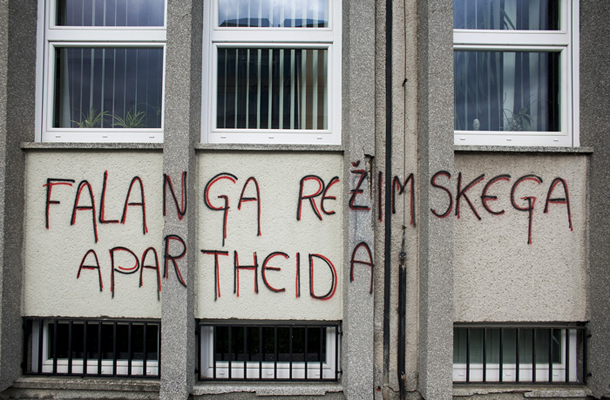 FALANGA REŽIMSKEGA
APARTHEIDA